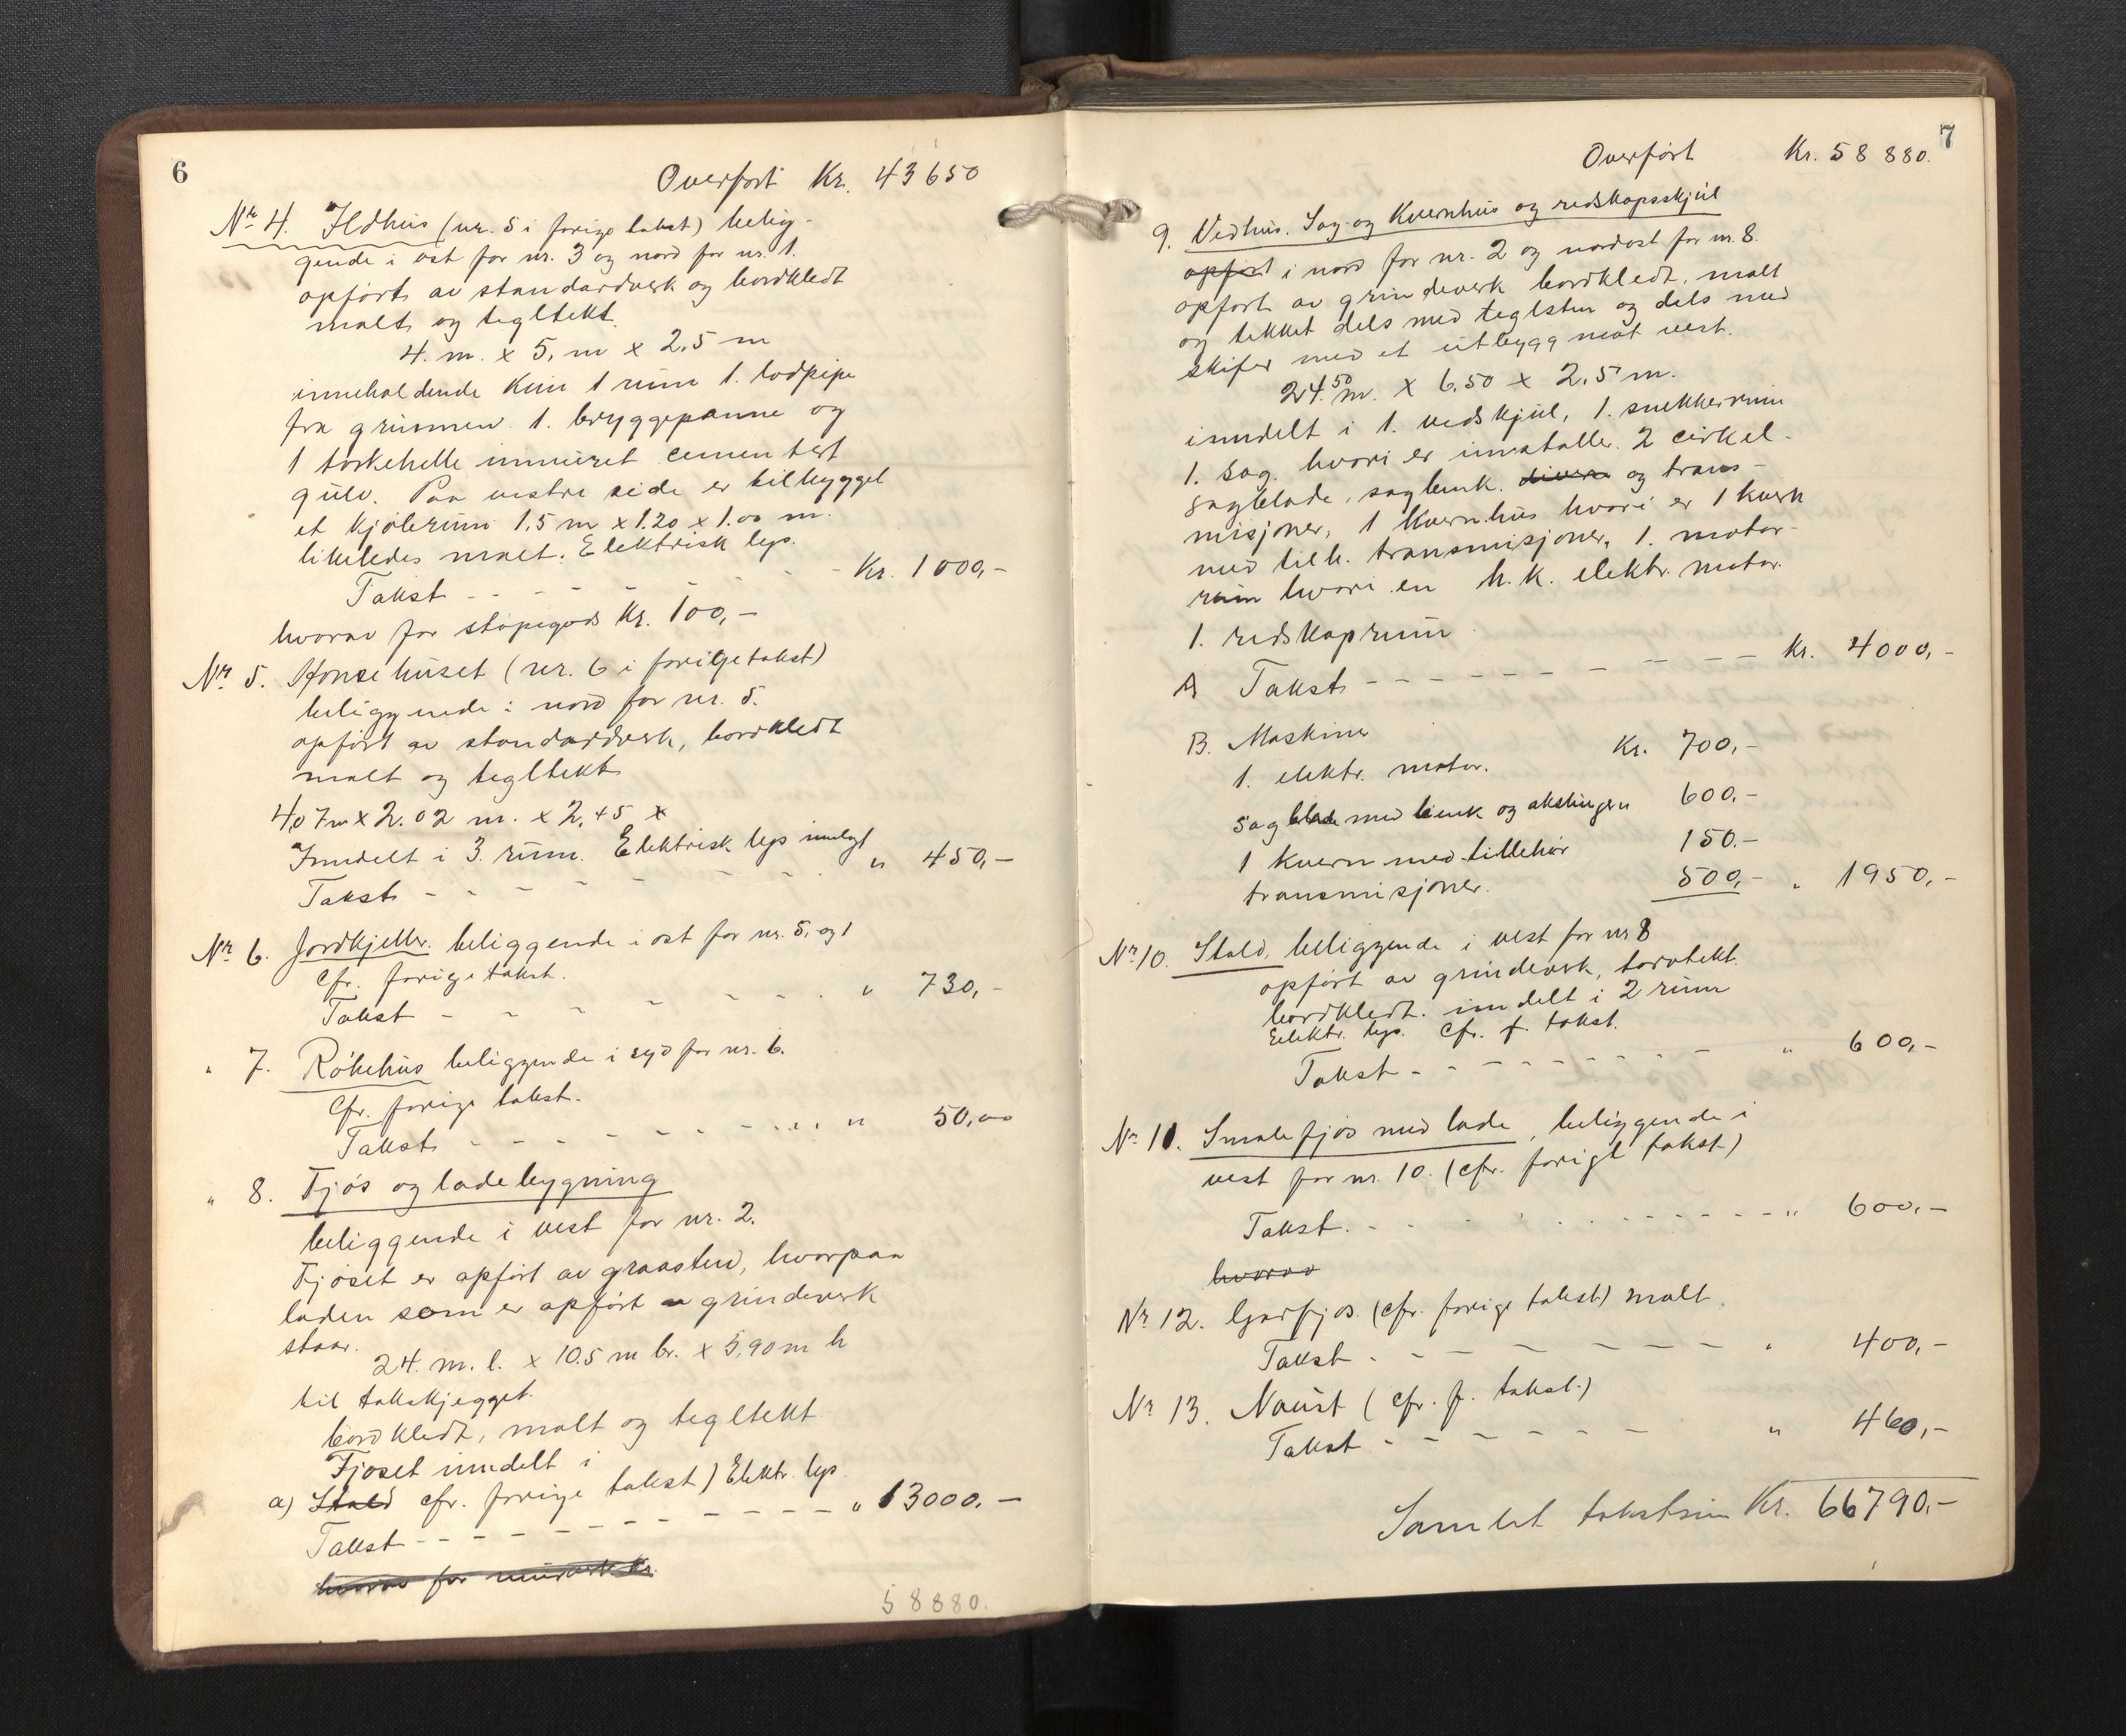 6
Overført Kr. 43650
Nr 4. Ildhus (nr. 5 i forige takst) belig-
gende i øst for nr. 3 og nord for nr. 1.
opført av standardverk og bordkledt
malt og tegltekt.
4. m. x 5. m x 2.5 m
inneholdende kun 1 rum 1. lodpipe
fra grunnen. 1. bryggepanne og
1 takkehelle inmuret cementert
gulv. Paa vestre side er tilbygget
et kjølerum 1.5 m x 1.20 x 1.00 m.
likeledes malt. Elektrisk lys.
Takst - - - - - - - Kr. 1000,-
hvorav for støpegods Kr. 100,-
Nr 5. Hønsehuset (nr. 6 i forige takst)
beliggende i nord for nr. 5.
opført av standardverk, bordkledt
malt og tegltekt
4,07m x 2.02 m. x 2,45 x
Inndelt i 3. rum. Elektrisk lys innlagt
Takst - - - - - - - " 450,-
Nr 6. Jordkjeller beliggende i øst for nr. 5. og 1
cfr. forige takst.
Takst - - - - - - - " 730,-
" 7. Rökehus beliggende i syd for nr. 6.
cfr. forige takst.
Takst - - - - - - - " 50,00
" 8. Fjøs og ladebygning
beliggende i vest for nr. 2.
Fjøset er opført av graasten, hvorpaa
laden som er opført av grindverk
staar.
24. m. l. x 10.5 m br. x 5,90 m h
til takskjegget.
bordkledt, malt og tegltekt
Fjøset inndelt i
a) Stald cfr. forige takst) Elektr. lys
Takst - - - - - - - " 13000,-
hvorav for murverk Kr.
58880.
7
Overført Kr. 58 880.
9. Vedhus. Sag og Kvernhus og redskapsskjul
opført i nord for nr. 2 og nordost for nr. 8.
opført av grindeverk bordkledt, malt
og tekket dels med teglsten og dels med
skifer med et utbygg mot vest.
24.50 m. x 6.50 x 2.5 m.
inndelt i 1. vedskjul, 1. snekkerrum
1. sag. hvori er installer. 2 cirkel-
sagblade, sagbenk. diverse og trans-
misjoner, 1 Kvernhus hvori er 1 kvern
med tilh. transmisjoner, 1. motor-
rum hvori en h.k. elektr. motor.
1. redskaprum
A Takst - - - - - - - Kr. 4000,-
B. Maskiner
1. elektr. motor. Kr. 700,-
Sagblade med benk og akslinger " 600,-
1 kvern med tilbehør 150,-
transmisjoner. 500,- " 1950,-
Nr 10. Stald, beliggende i vest for nr 8
opført av grindverk, torvtekt.
bordkledt. inndelt i 2 rum
Elektr. lys. cfr. f. takst.
Takst - - - - - - - " 600,-
Nr 11. Smalefjøs med lade, beliggende i
vest for nr. 10. (cfr. forige takst)
Takst. - - - - - - - " 600,-
hvorav
Nr 12. Geitfjøs (cfr. forige takst) malt.
Takst - - - - - - - " 400,-
Nr 13. Naust (cfr. f. takst.)
Takst - - - - - - - " 460,-
Samlet takstsum Kr. 66790,-